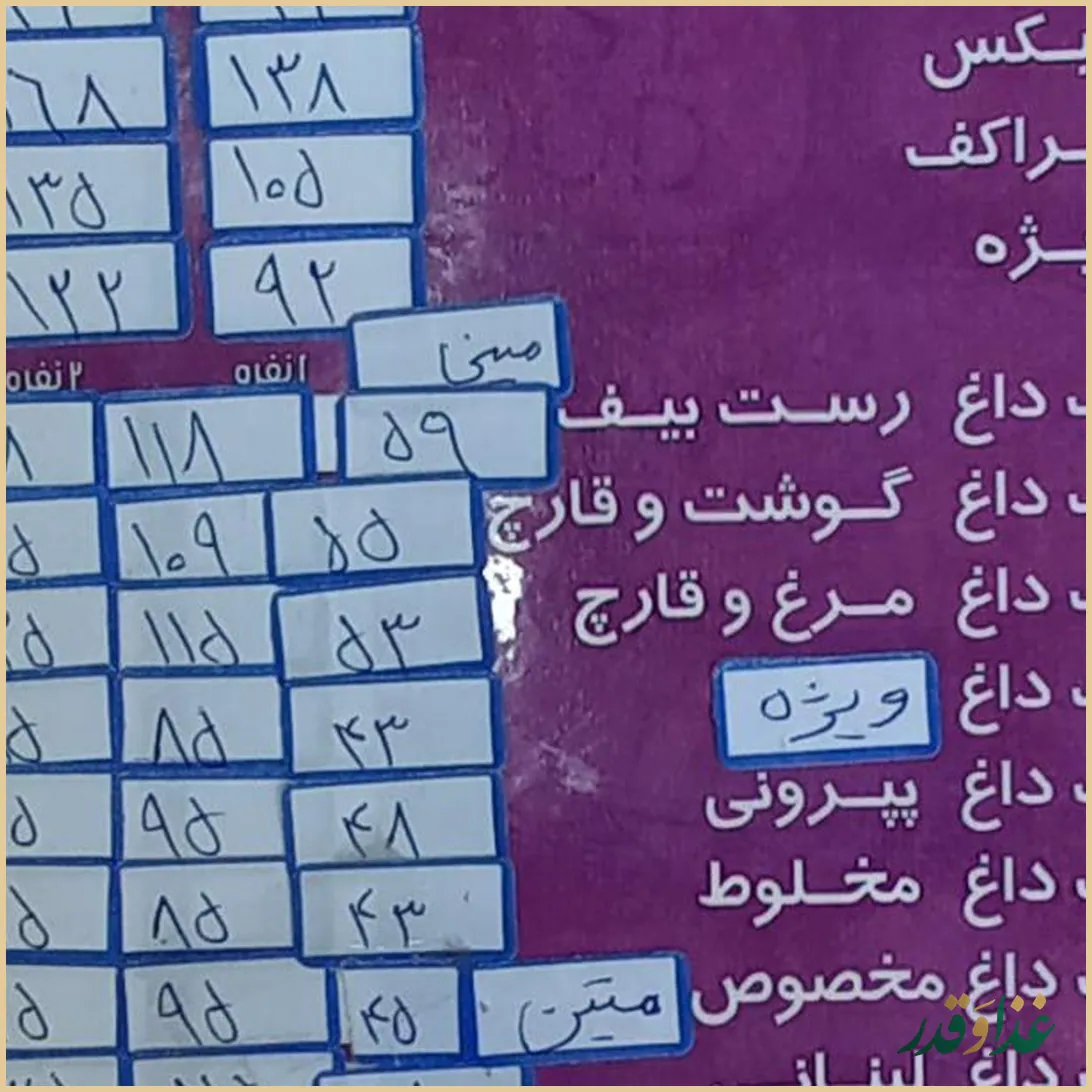 ۱۳۸
۱۰۵ ۱۳۵
۹۲ ۱۲۲
مینی
۱ نفره ۲ نفره
داغ رست بیف ۵۹ ۱۱۸
داغ گوشت و قارچ ۵۵ ۱۰۹
داغ مرغ و قارچ ۵۳ ۱۱۵
داغ ویژه ۴۳ ۸۵
داغ پپرونی ۴۸ ۹۵
داغ مخلوط ۴۳ ۸۵
داغ مخصوص متین ۴۵ ۹۵
داغ
غذا وَ قدر